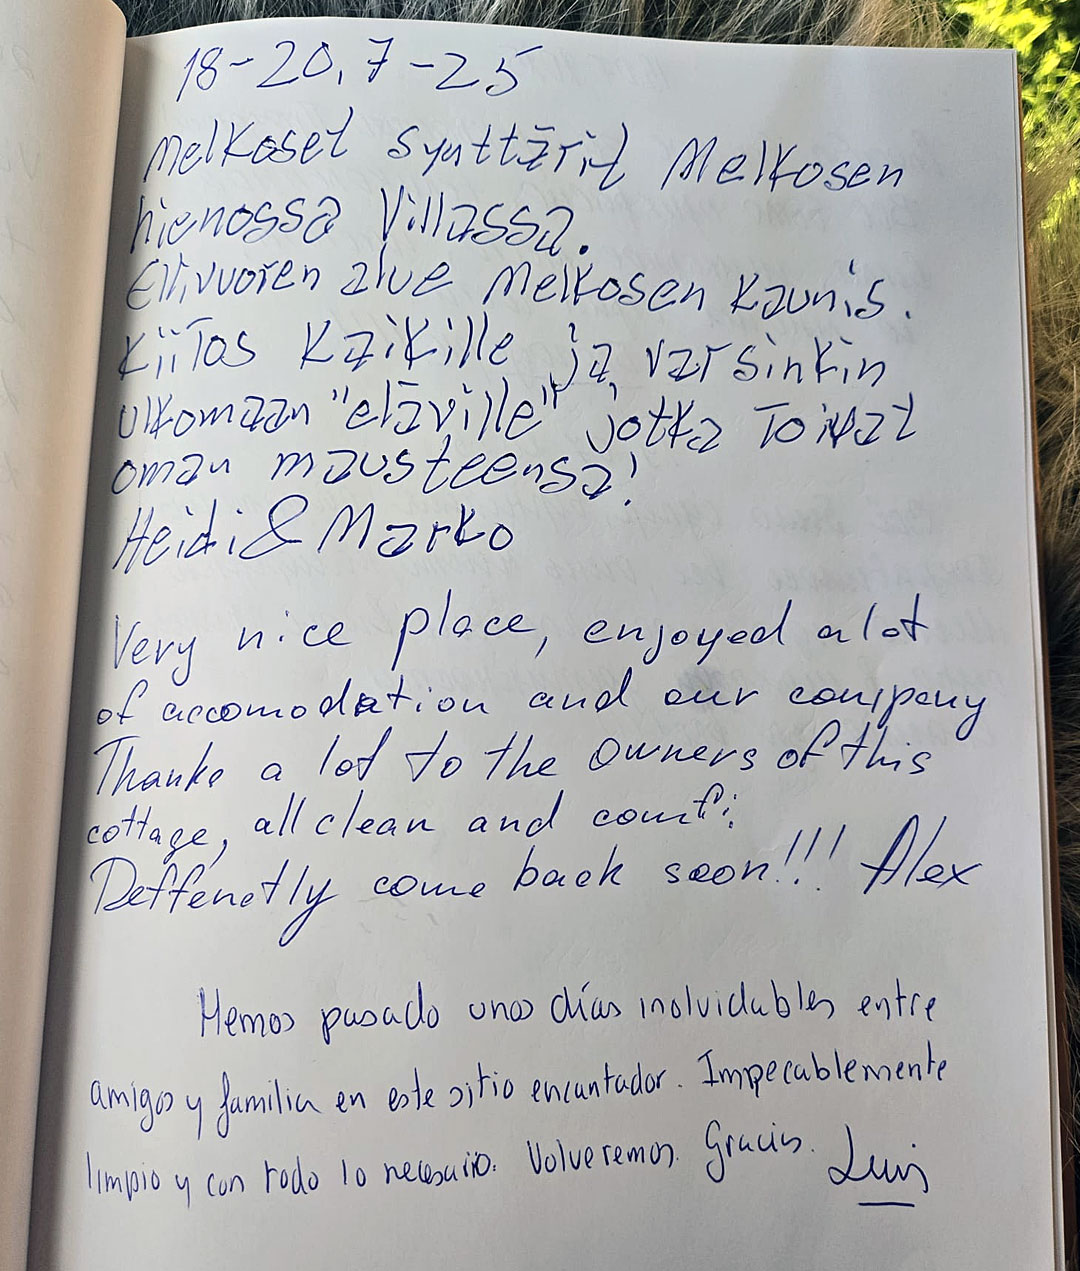 18-20,7-25
Melkoset synttärit Melkosen
hienossa Villassa.
Ellivuoren alue Melkosen kaunis.
Kiitos kaikille ja varsinkin
ulkomaan "eläville" jotka Toivat
oman mausteensa!
Heidi & Marko
Very nice place, enjoyed alot
of accomodation and our company
Thanks a lot to the owners of this
cottage, all clean and comfi
Deffenetly come back soon!!! Alex
Hemos pasado unos días inolvidables entre
amigos y familia en este sitio encantador. Impecablemente
limpio y con todo lo necesario. Volveremos. Gracias. Luis